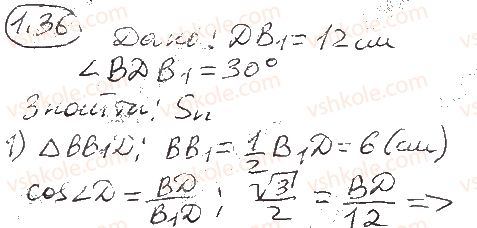 1.36
Дано: DB₁ = 12 см
∠BDB₁ = 30°
Знайти: Sп
1) △BB₁D; BB₁ = 1/2 B₁D = 6 (см)
cos∠D = BD/B₁D; √3/2 = BD/12 =>
vshkole.com